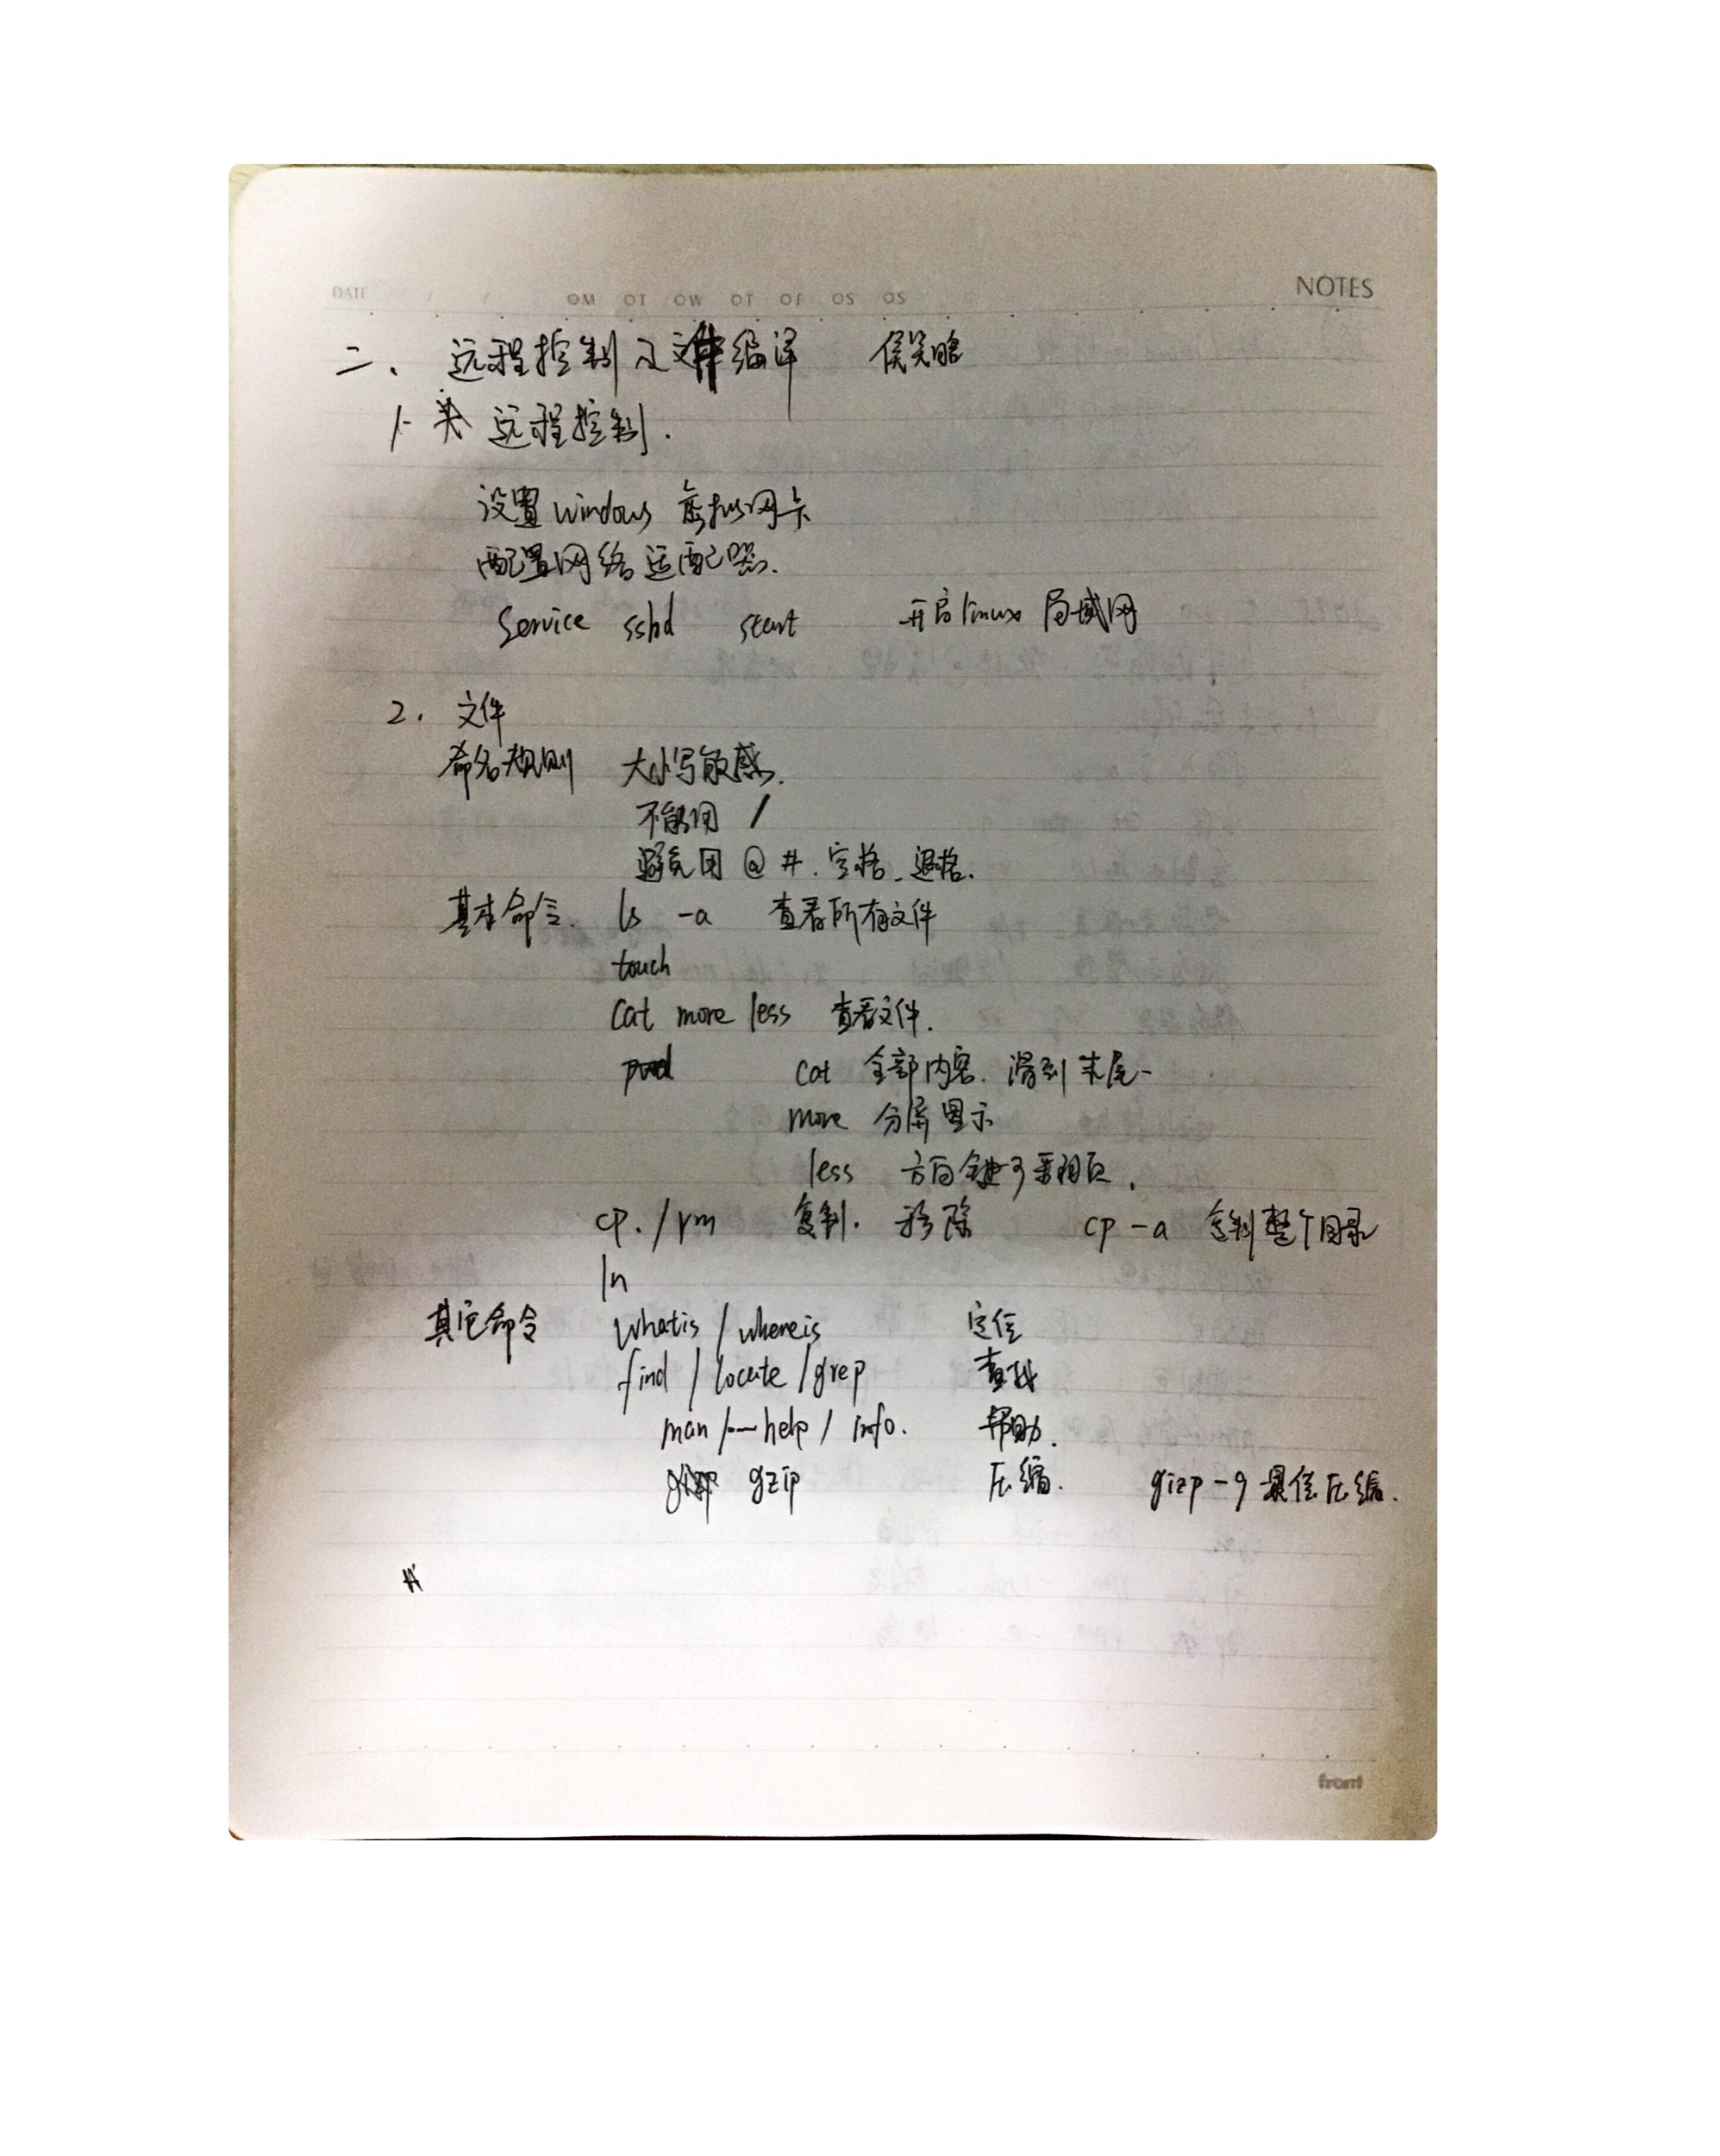 DATE / / OM OT OW OT OF OS OS NOTES
二、远程控制及文件编译
1. 远程控制.
设置windows 虚拟网卡
配置网络适配器.
Service sshd start 开启linux 局域网
2. 文件
命名规则 大小写敏感.
不能用 /
避免用 @ #. 空格、退格.
基本命令. ls -a 查看所有文件
touch
cat more less 查看文件.
cat 全部内容. 滑到末尾
more 分屏显示
less 方向键可翻页.
cp. /rm 复制. 移除 cp -a 复制整个目录
ln
其它命令 whatis / whereis 定位
find / locate /grep 查找
man /--help / info. 帮助.
gzip 压缩. gizp -9 最佳压缩.
front